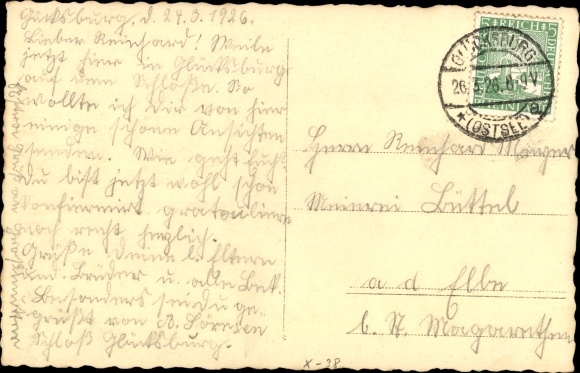 Glücksburg, d. 24.3.1926.
Lieber Reinhard! Weile
jetzt hier in Glücksburg
auf dem Schloße. So
wollte ich Dir von hier
einige schöne Ansichten
senden. Wie geht Euch?
Du bist jetzt wohl schon
konfirmirt gratouliere
noch recht herzlich.
Grüße deine l. Eltern
und Brüder u. alle Bek.
Besonders sei du ge-
grüßt von A. Sörensen
Schloß Glücksburg.
DEUTSCHES REICH
GLÜCKSBURG
26.3.26. 8-9 V.
* (OSTSEE) a
Herrn Reinhard Meyer
Meierei Büttel
a d Elbe
b. St. Magarethen
X-38